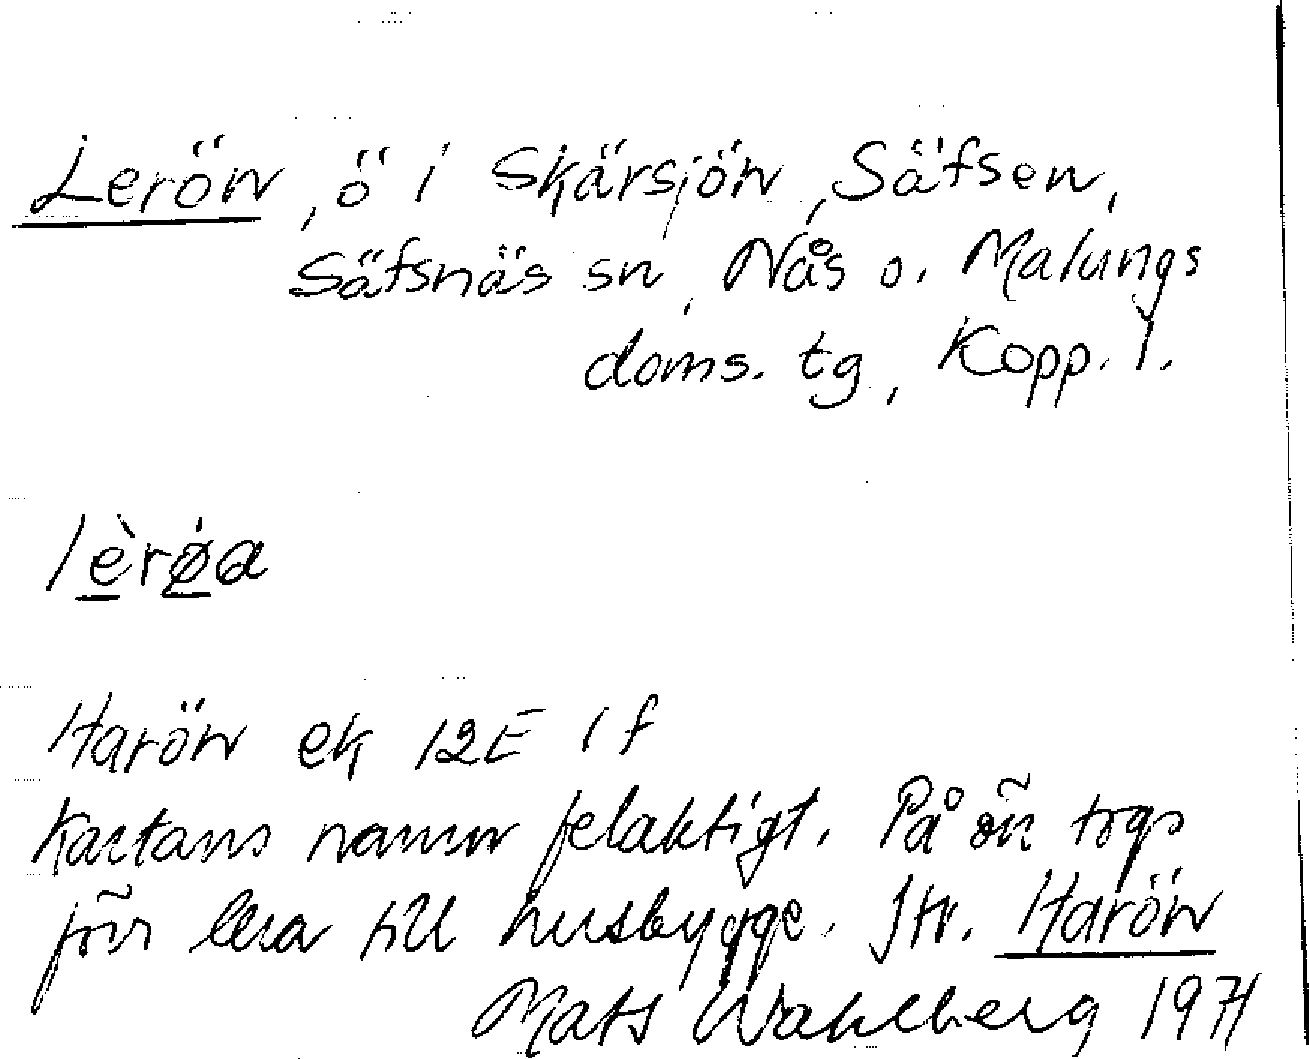 Lerön, ö i Skärsjön, Säfsen,
Säfsnäs sn, Nås o. Malungs
doms. tg, Kopp. l.
lèrø̀a
Harön ek 12E 1f
Kartans namn felaktigt. På ön togs
förr lera till husbygge. Jfr. Harön
Mats Wahlberg 1971